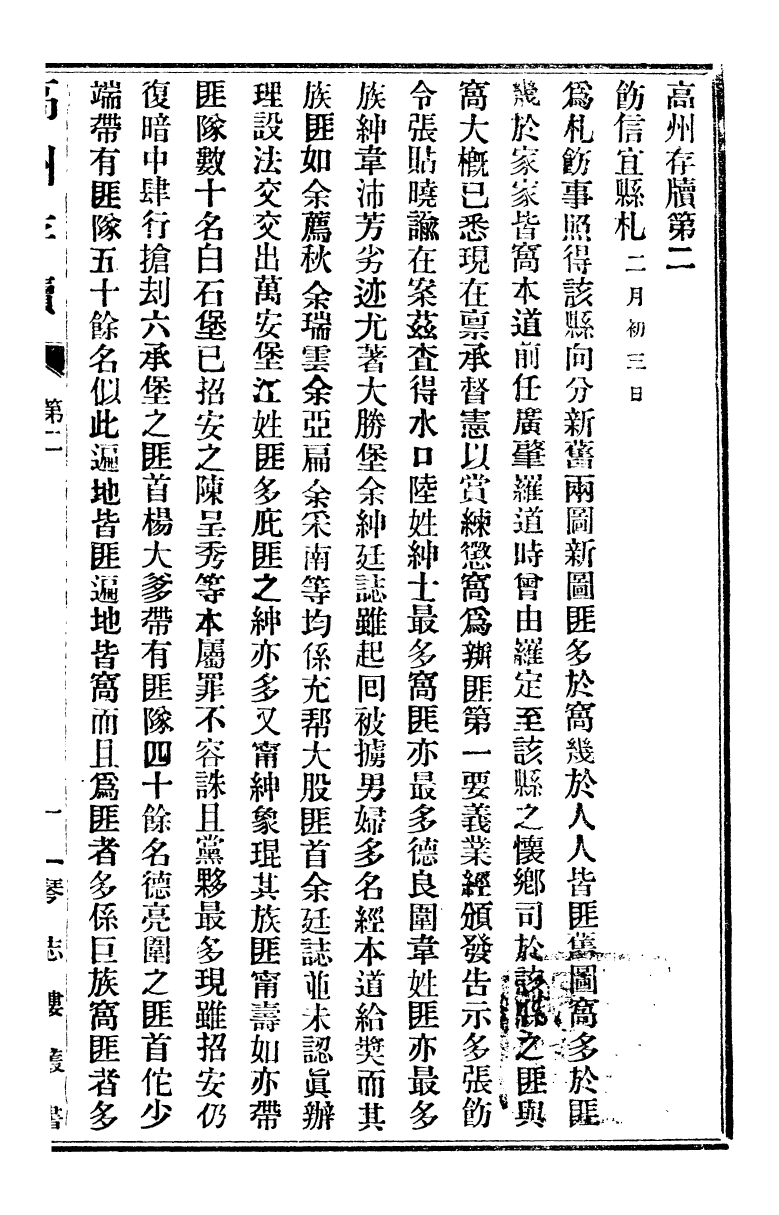 高州存牘第二
飭信宜縣札 二月初三日
爲札飭事照得該縣向分新舊兩圖新圖匪多於窩幾於人人皆匪舊圖窩多於匪
幾於家家皆窩本道前任廣肇羅道時曾由羅定至該縣之懷鄉司於該縣之匪與
窩大槪已悉現在禀承督憲以賞練懲窩爲辦匪第一要義業經頒發告示多張飭
令張貼曉諭在案茲查得水口陸姓紳士最多窩匪亦最多德良圍韋姓匪亦最多
族紳韋沛芳劣迹尤著大勝堡余紳廷誌雖起回被擄男婦多名經本道給獎而其
族匪如余薦秋余瑞雲余亞扁余采南等均係充帮大股匪首余廷誌並未認眞辦
理設法交交出萬安堡江姓匪多庇匪之紳亦多又甯紳象琨其族匪甯壽如亦帶
匪隊數十名白石堡已招安之陳呈秀等本屬罪不容誅且黨夥最多現雖招安仍
復暗中肆行搶刦六承堡之匪首楊大爹帶有匪隊四十餘名德亮圍之匪首佗少
端帶有匪隊五十餘名似此遍地皆匪遍地皆窩而且爲匪者多係巨族窩匪者多
高州存牘 第二 一 琴志樓叢書